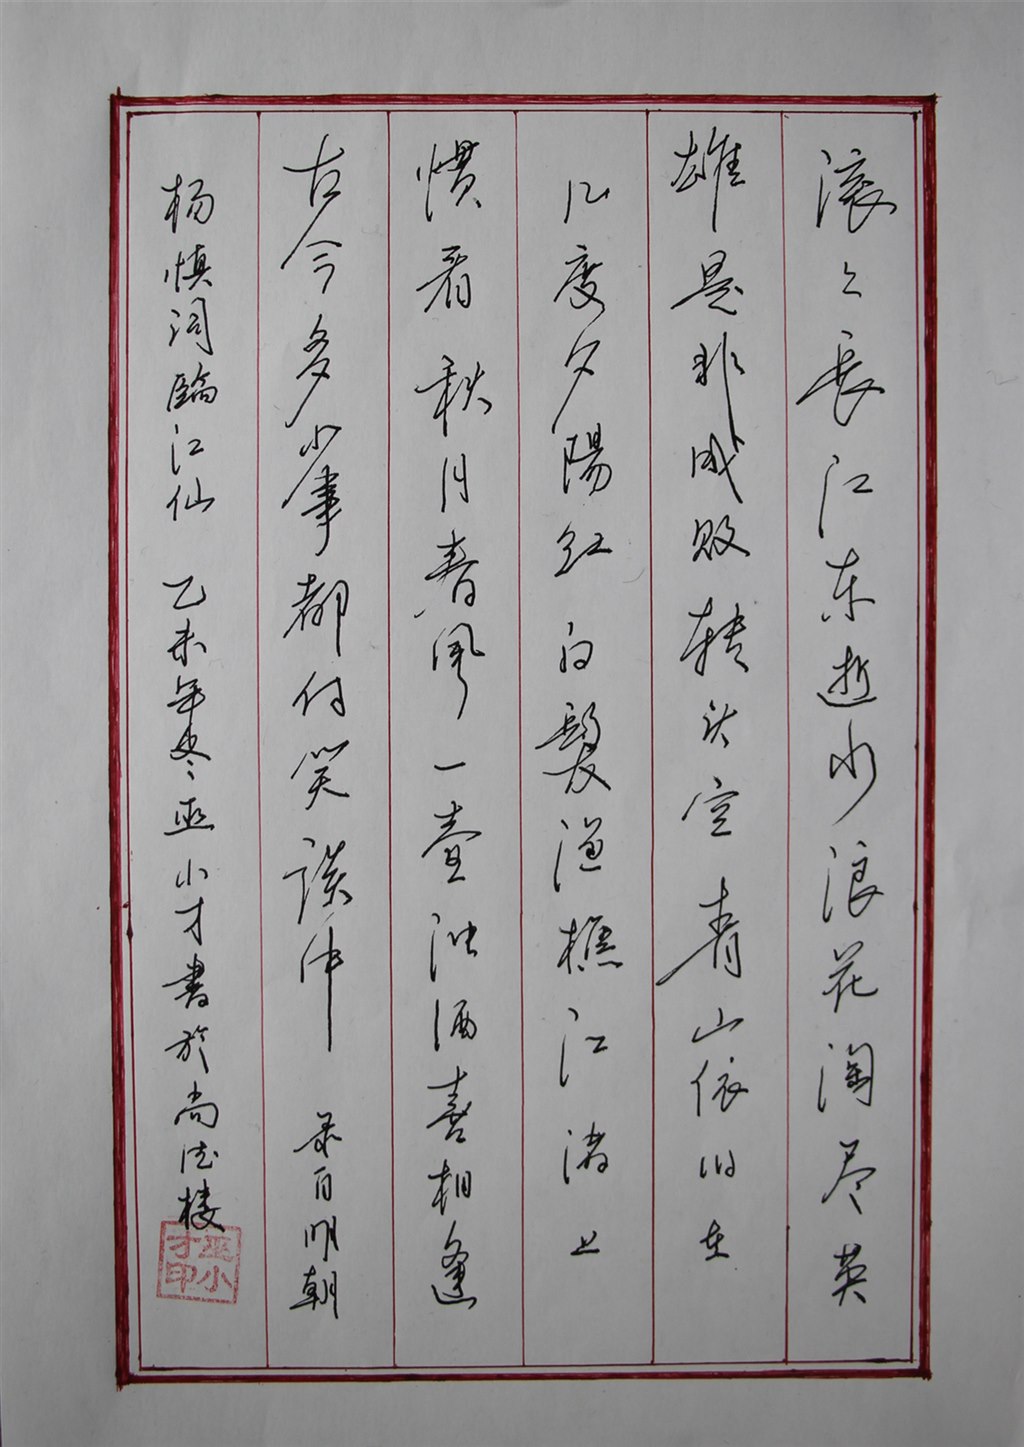 滚〻长江东逝水浪花淘尽英
雄是非成败转头空青山依旧在
几度夕陽红白髮渔樵江渚上
惯看秋月春风一壶浊酒喜相逢
古今多少事都付笑談中 录自明朝
杨慎词臨江仙 乙未年冬巫小才書於尚德楼
巫小才印